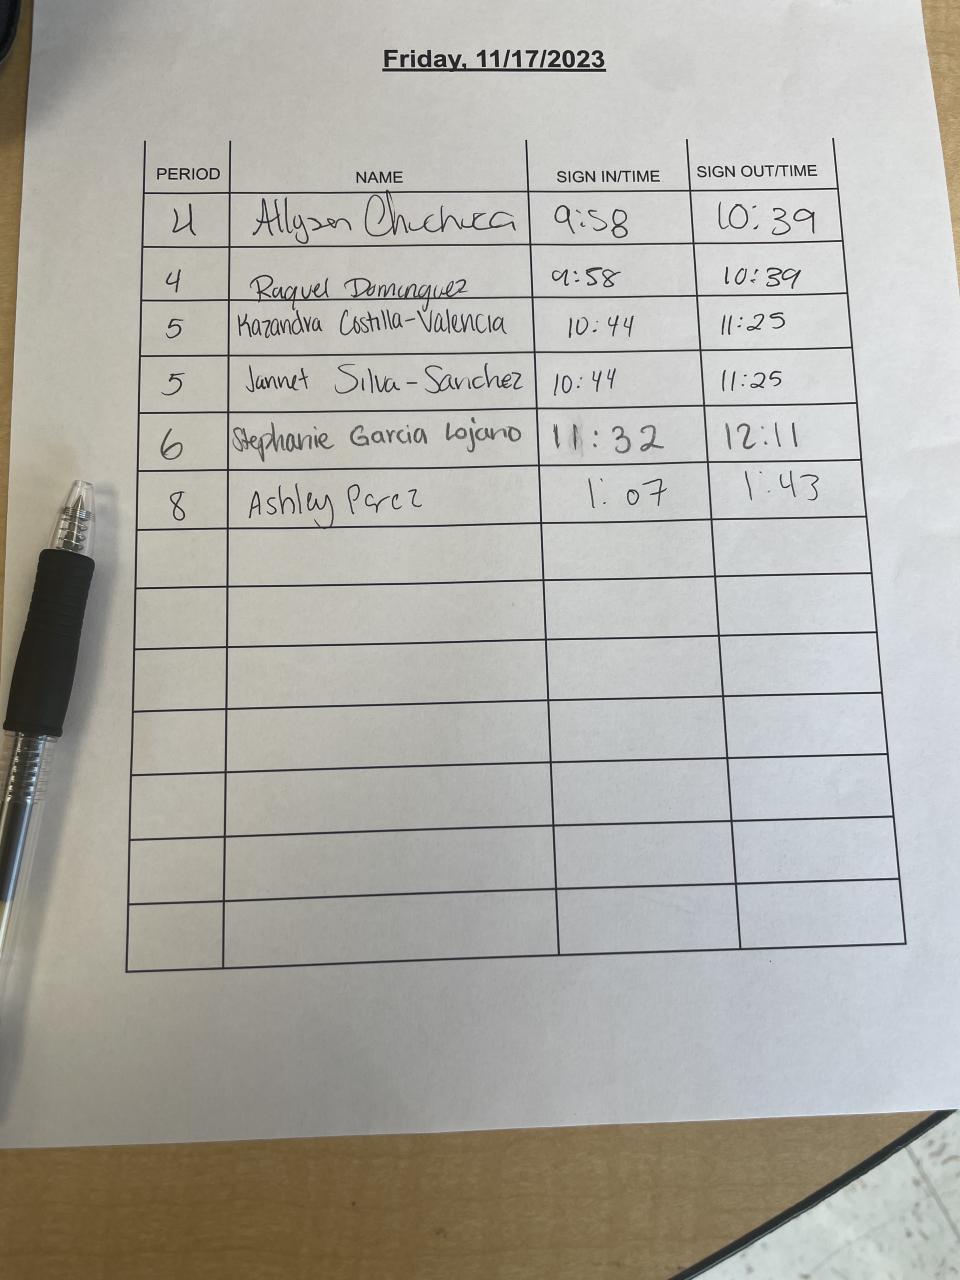 Friday, 11/17/2023
PERIOD NAME SIGN IN/TIME SIGN OUT/TIME
4 Allyson Chuchuca 9:58 10:39
4 Raquel Dominguez 9:58 10:39
5 Kazandra Costilla-Valencia 10:44 11:25
5 Jannet Silva-Sanchez 10:44 11:25
6 Stephanie Garcia Lojano 11:32 12:11
8 Ashley Perez 1:07 1:43